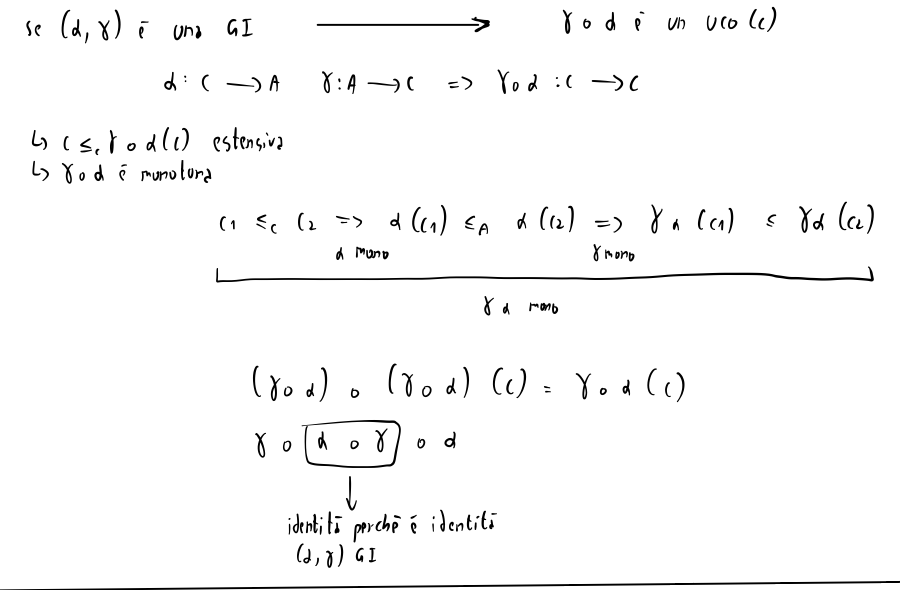 se (α, γ) è una GI ⟶ γ ∘ α è un uco(C)
α : C ⟶ A γ : A ⟶ C => γ ∘ α : C ⟶ C
↳ c ≤c γ ∘ α(c) estensiva
↳ γ ∘ α è monotona
c1 ≤c c2 => α(c1) ≤A α(c2) => γ α (c1) ≤ γ α (c2)
α mono γ mono
γ α mono
(γ ∘ α) ∘ (γ ∘ α) (c) = γ ∘ α (c)
γ ∘ α ∘ γ ∘ α
identità perchè è identità
(α, γ) GI